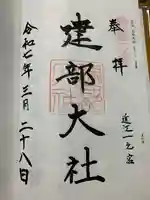 奉拝
近江一之宮
建部大社
令和七年三月二十八日